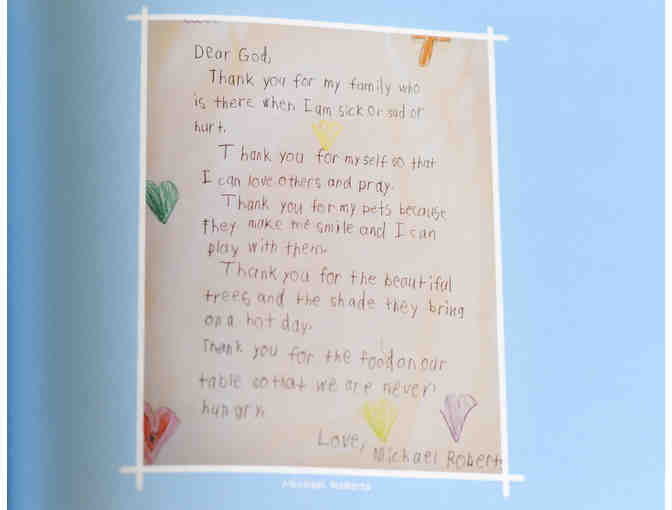 Dear God,
Thank you for my family who
is there when I am sick or sad or
hurt.
Thank you for myself so that
I can love others and pray.
Thank you for my pets because
they make me smile and I can
play with them.
Thank you for the beautiful
trees and the shade they bring
on a hot day.
Thank you for the food on our
table so that we are never
hungry.
Love, Michael Roberts
Michael Roberts